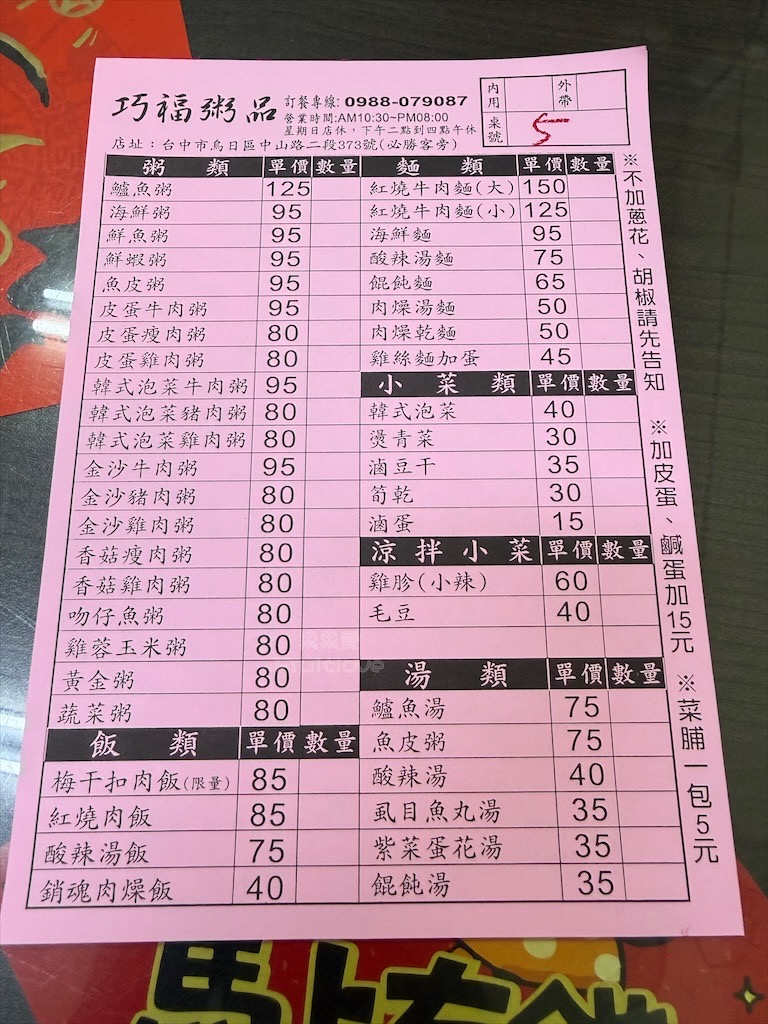 巧福粥品
訂餐專線: 0988-079087
營業時間:AM10:30~PM08:00
星期日店休，下午二點到四點午休
店址：台中市烏日區中山路二段373號(必勝客旁)
內用
外帶
桌號 5
粥類 單價 數量
鱸魚粥 125
海鮮粥 95
鮮魚粥 95
鮮蝦粥 95
魚皮粥 95
皮蛋牛肉粥 95
皮蛋瘦肉粥 80
皮蛋雞肉粥 80
韓式泡菜牛肉粥 95
韓式泡菜豬肉粥 80
韓式泡菜雞肉粥 80
金沙牛肉粥 95
金沙豬肉粥 80
金沙雞肉粥 80
香菇瘦肉粥 80
香菇雞肉粥 80
吻仔魚粥 80
雞蓉玉米粥 80
黃金粥 80
蔬菜粥 80
飯類 單價 數量
梅干扣肉飯(限量) 85
紅燒肉飯 85
酸辣湯飯 75
銷魂肉燥飯 40
麵類 單價 數量
紅燒牛肉麵(大) 150
紅燒牛肉麵(小) 125
海鮮麵 95
酸辣湯麵 75
餛飩麵 65
肉燥湯麵 50
肉燥乾麵 50
雞絲麵加蛋 45
小菜類 單價 數量
韓式泡菜 40
燙青菜 30
滷豆干 35
筍乾 30
滷蛋 15
涼拌小菜 單價 數量
雞胗(小辣) 60
毛豆 40
湯類 單價 數量
鱸魚湯 75
魚皮粥 75
酸辣湯 40
虱目魚丸湯 35
紫菜蛋花湯 35
餛飩湯 35
※不加蔥花、胡椒請先告知 ※加皮蛋、鹹蛋加15元 ※菜脯一包5元